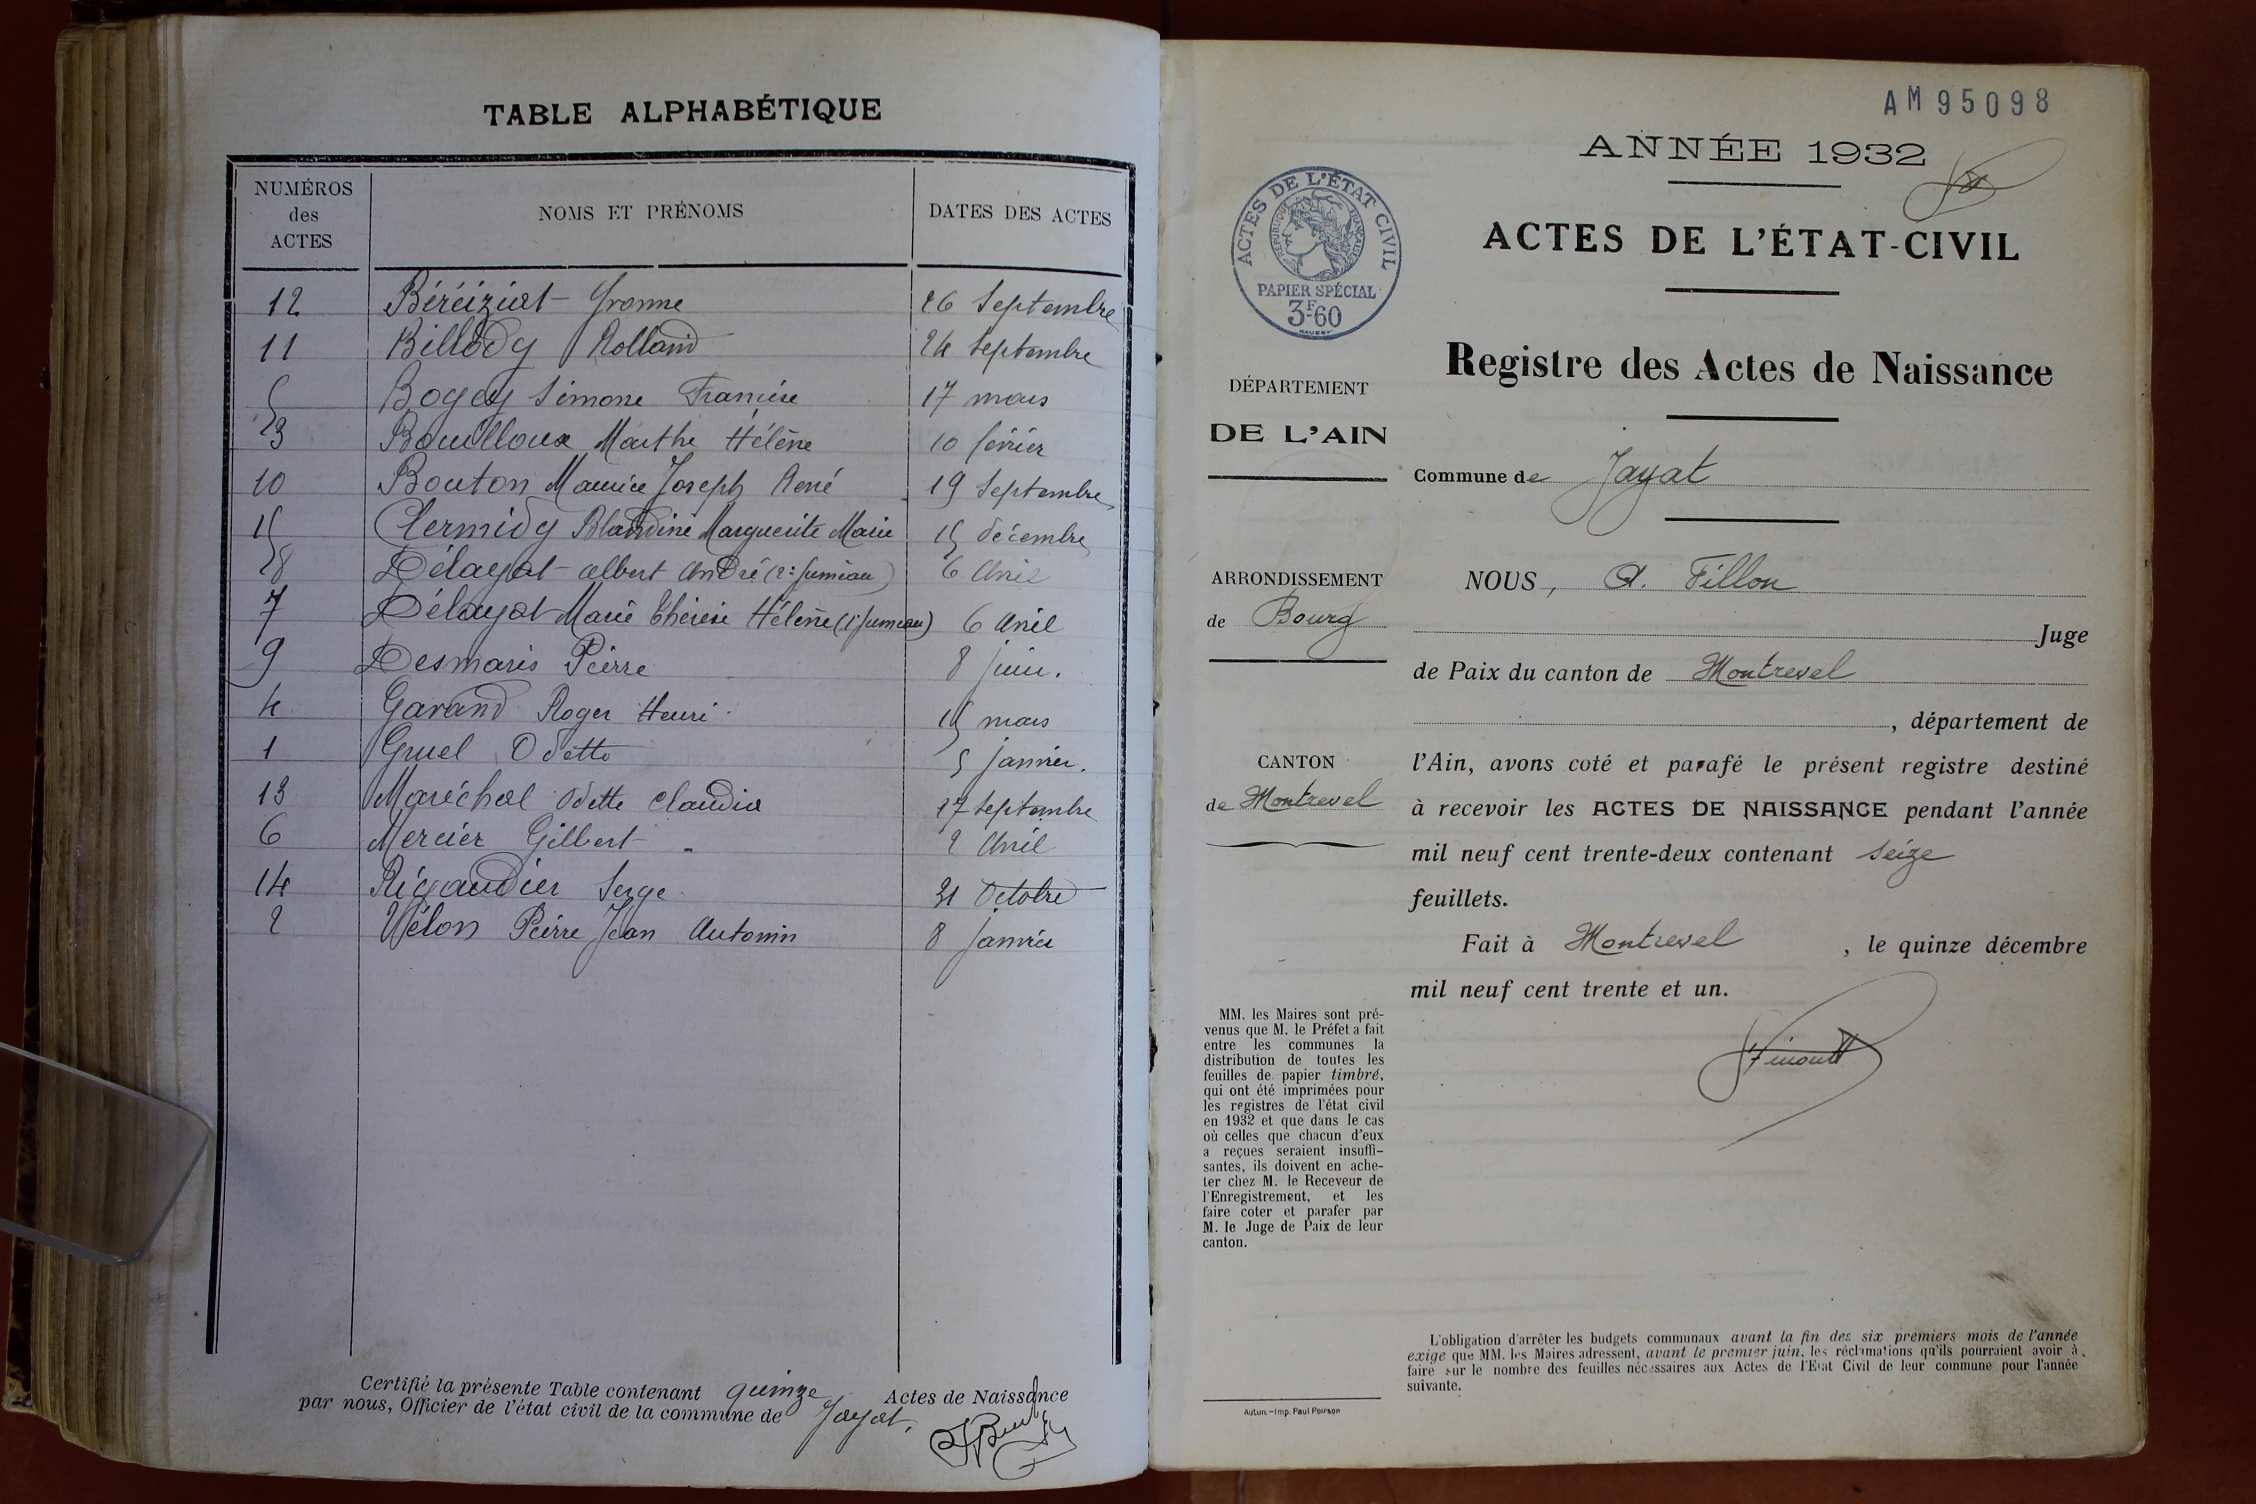 TABLE ALPHABÉTIQUE
NUMÉROS des ACTES NOMS ET PRÉNOMS DATES DES ACTES
12 Béréiziat Yvonne 26 Septembre
11 Billody Rolland 24 Septembre
5 Bogey Simone Francine 17 mars
3 Bouilloux Marthe Hélène 10 février
10 Bouton Maurice Joseph René 19 Septembre
15 Clermidy Blandine Marguerite Marie 15 décembre
8 Délayat albert André (2e Jumeau) 6 Avril
7 Délayat Marie Thérèse Hélène (1er Jumeau) 6 Avril
9 Desmaris Pierre 8 juin.
4 Garand Roger Henri 15 mars
1 Gruel Odette 5 janvier.
13 Maréchal Odette Claudia 27 septembre
6 Mercier Gilbert 2 Avril
14 Rigaudier Serge 31 Octobre
2 Vélon Pierre Jean Antonin 8 janvier
Certifié la présente Table contenant quinze Actes de Naissance
par nous, Officier de l'état civil de la commune de Jayat.
AM 95098
ANNÉE 1932
ACTES DE L'ÉTAT CIVIL
RÉPUBLIQUE FRANÇAISE
PAPIER SPÉCIAL
3F60
ACTES DE L'ÉTAT-CIVIL
Registre des Actes de Naissance
DÉPARTEMENT
DE L'AIN
Commune de Jayat
ARRONDISSEMENT
de Bourg
CANTON
de Montrevel
NOUS, A. Fillon
Juge
de Paix du canton de Montrevel
, département de
l'Ain, avons coté et parafé le présent registre destiné
à recevoir les ACTES DE NAISSANCE pendant l'année
mil neuf cent trente-deux contenant seize
feuillets.
Fait à Montrevel, le quinze décembre
mil neuf cent trente et un.
MM. les Maires sont pré-
venus que M. le Préfet a fait
entre les communes la
distribution de toutes les
feuilles de papier timbré,
qui ont été imprimées pour
les registres de l'état civil
en 1932 et que dans le cas
où celles que chacun d'eux
a reçues seraient insuffi-
santes, ils doivent en ache-
ter chez M. le Receveur de
l'Enregistrement, et les
faire coter et parafer par
M. le Juge de Paix de leur
canton.
L'obligation d'arrêter les budgets communaux avant la fin des six premiers mois de l'année
exige que MM. les Maires adressent, avant le premier juin, les réclamations qu'ils pourraient avoir à
faire sur le nombre des feuilles nécessaires aux Actes de l'Etat Civil de leur commune pour l'année
suivante.
Autun.-Imp. Paul Poirson